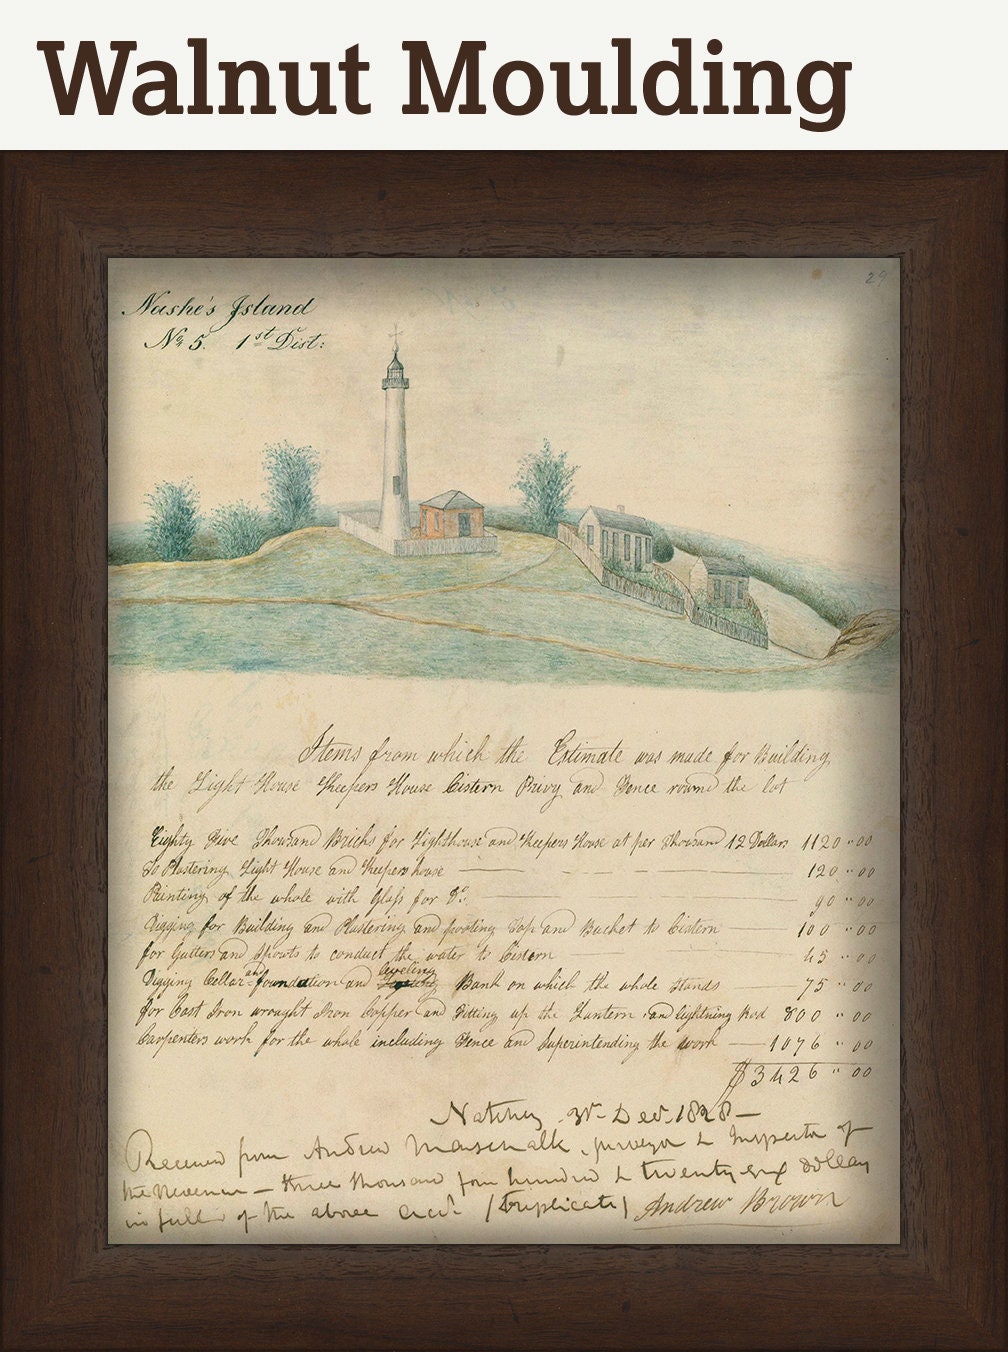 Walnut Moulding
29
Nashe's Island
No 5. 1st Dist:
Items from which the Estimate was made for Building
the Light House Keepers House Cistern Privy and Fence round the lot
Eighty Five Thousand Bricks for Lighthouse and Keepers House at per Thousand 12 Dollars 1120 " 00
To Plastering Light House and Keepers house 120 " 00
Painting of the whole with Glass for Do. 90 " 00
Digging for Building and Plastering and footing Top and Bucket to Cistern 100 " 00
for Gutters and Spouts to conduct the water to Cistern 45 " 00
Digging Cellar and foundation and leveling Bank on which the whole stands 75 " 00
for Cast Iron wrought Iron Copper and Fitting up the Lantern and lightning Rod 800 " 00
Carpenters work for the whole including Fence and Superintending the work 1076 " 00
$3426 " 00
Natchez Decr. 1828 —
Received from Andrew Marschalk, surveyor & Inspector of
the Revenue — three thousand four hundred & twenty six dollars
in full of the above acct. (Triplicate) Andrew Brown